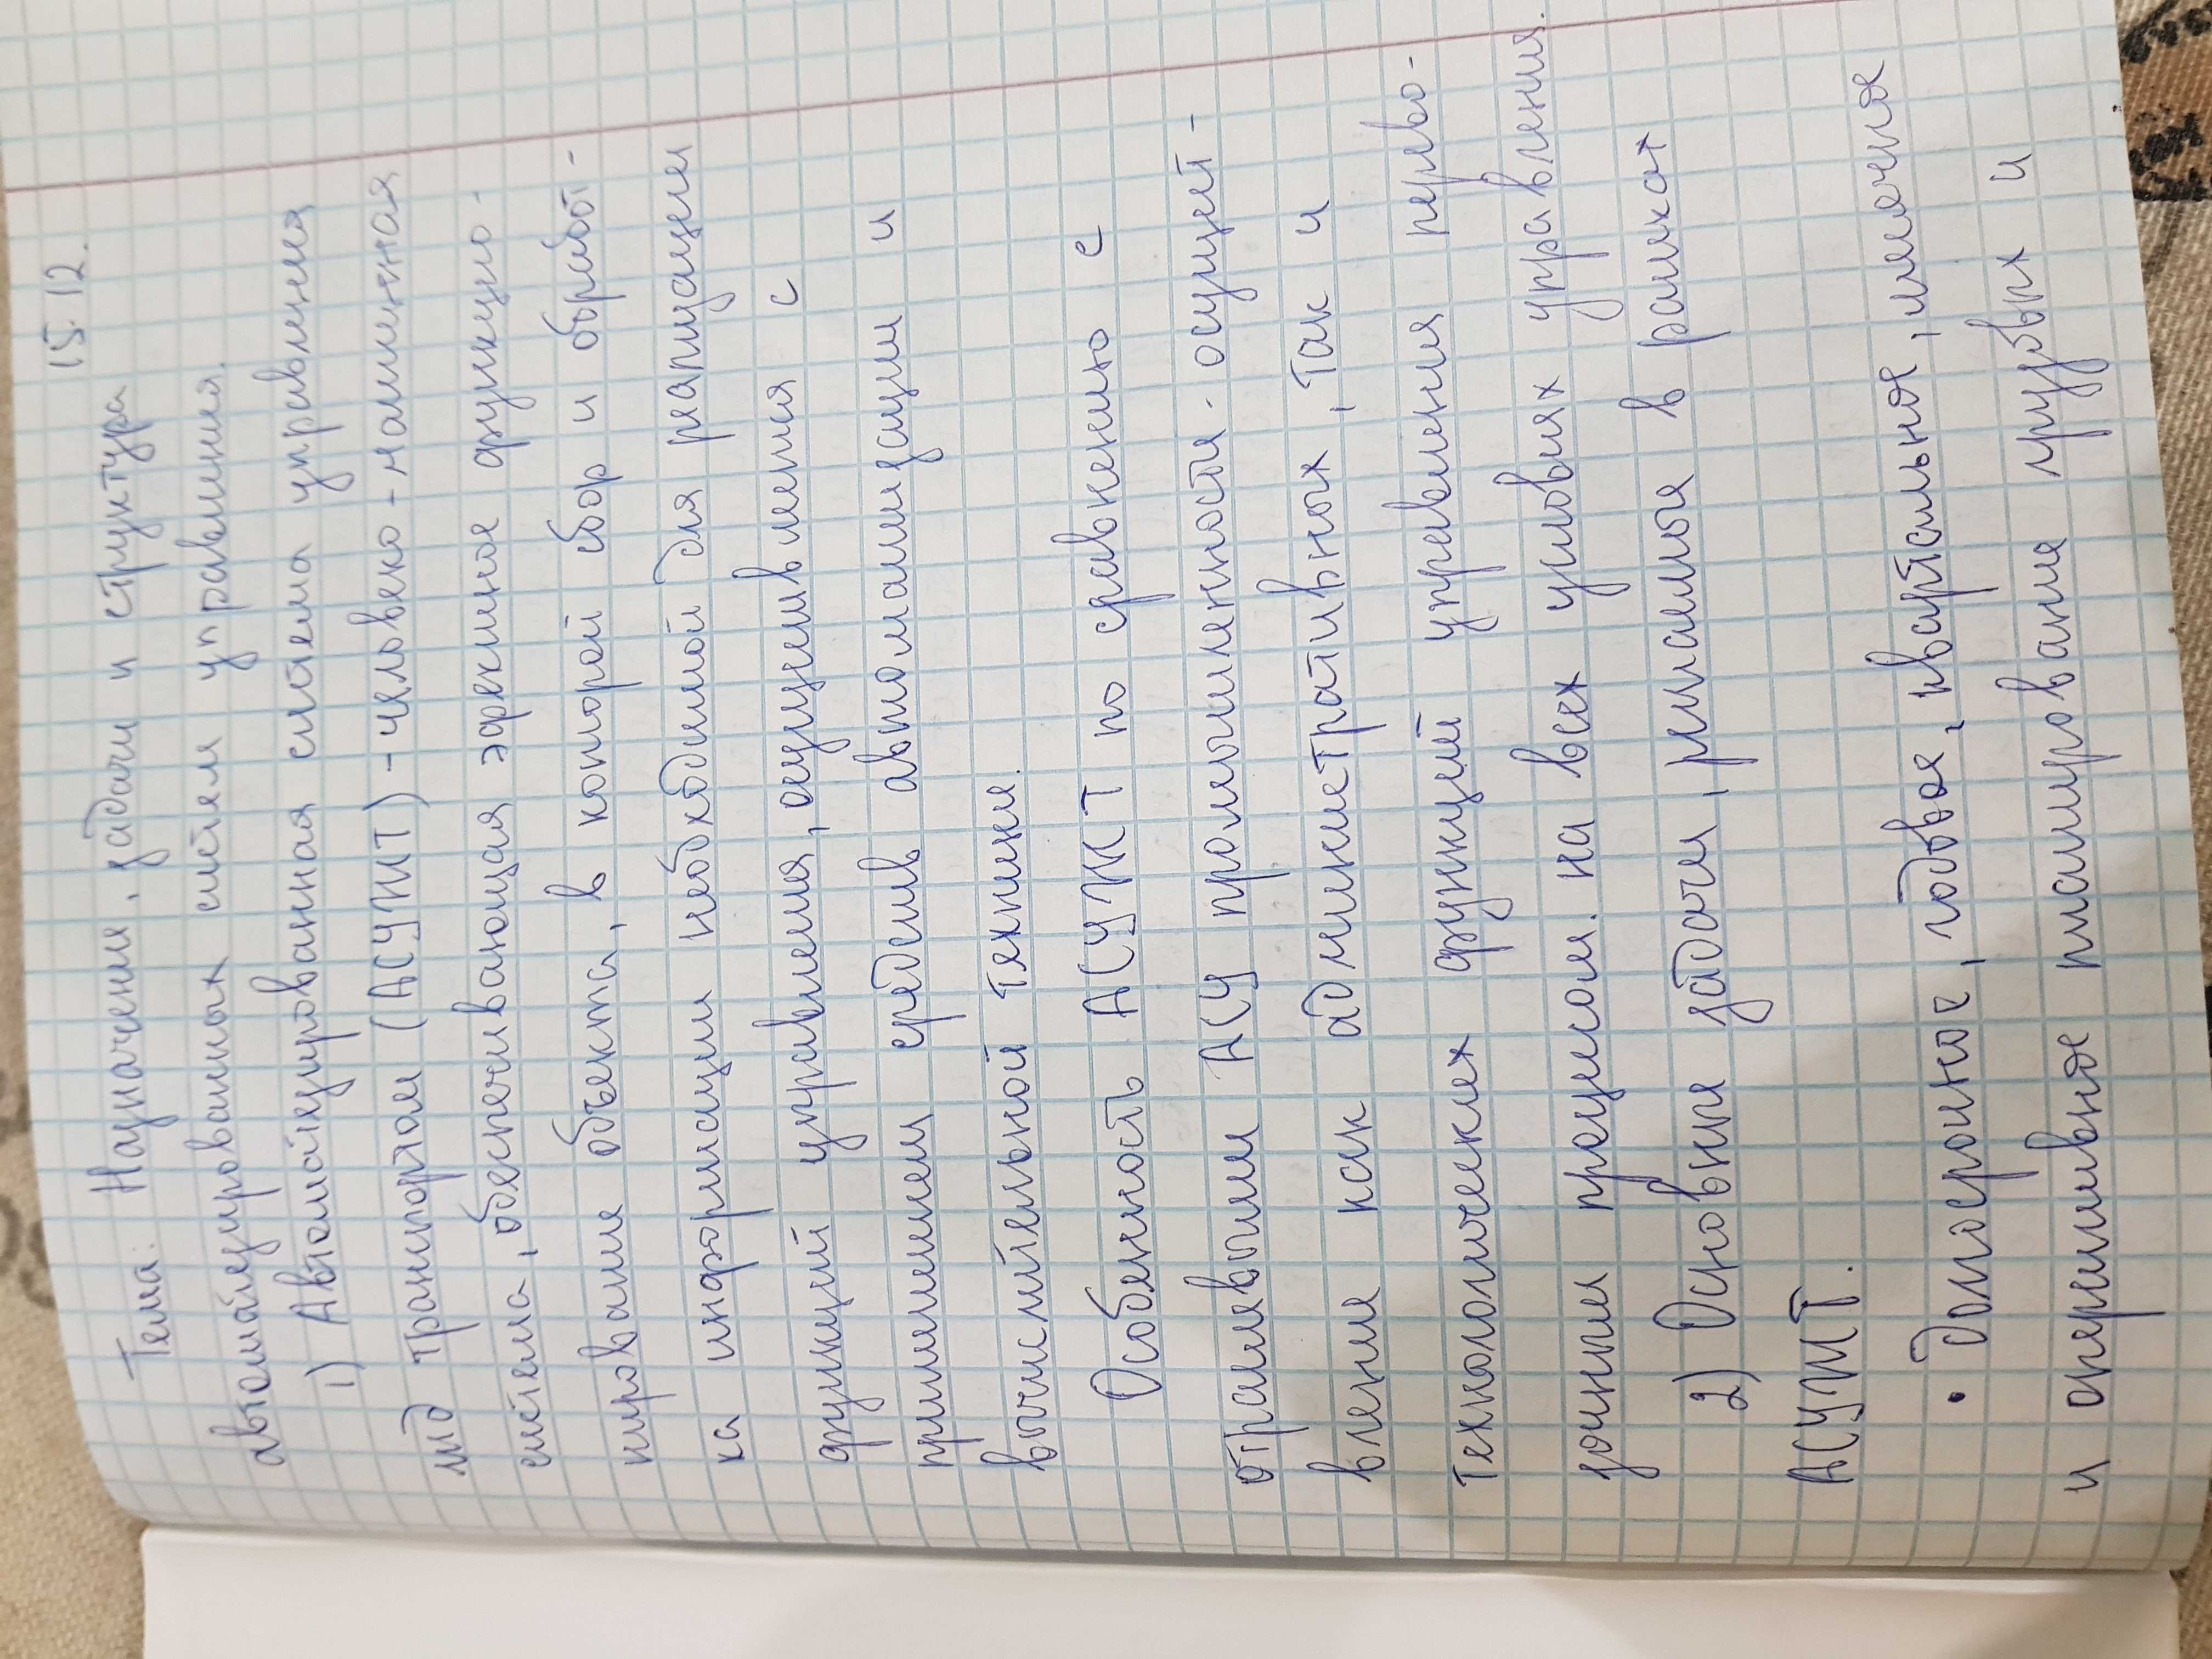 15.12.
Тема: Назначение, задачи и структура
автоматизированных систем управления.
1) Автоматизированная система управления
ж/д транспортом (АСУЖТ) - человеко-машинная
система, обеспечивающая эфективное функцио-
нирование объекта, в которой сбор и обработ-
ка информации необходимой для реализации
функций управления, осуществления с
применением средств автоматизации и
вычислительной технике.
Особенность АСУЖТ по сравнению с
отраслевыми АСУ промышленности - осущест-
вление как административных, так и
технологических функций управления перево-
зочным процессом. на всех условиях управления.
2) Основные задачи, решаемые в рамках
АСУЖТ.
• Долгосрочное, годовое, квартальное, месячное
и оперативное планирование грузовых и